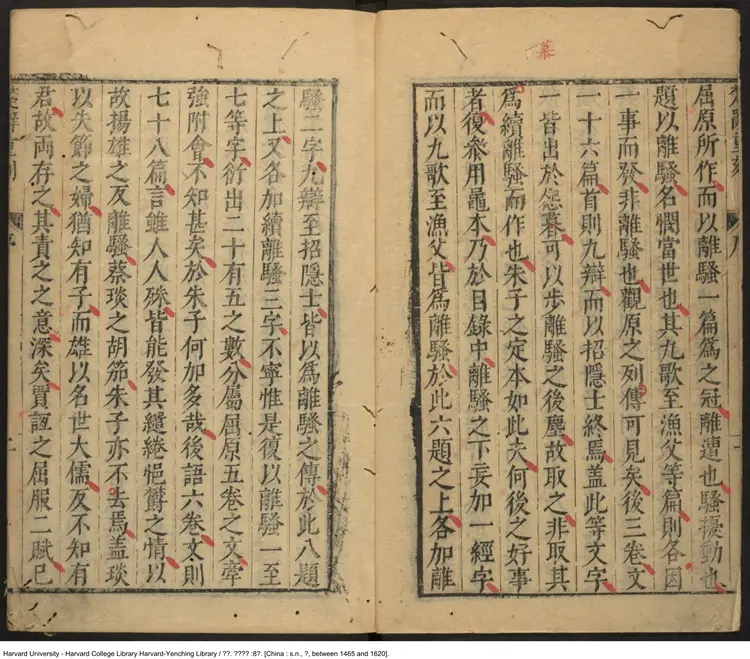 暮
屈原所作而以離騷一篇爲之冠離遭也騷擾動也
題以離騷名憫當世也其九歌至漁父等篇則各因
一事而發非離騷也觀原之列傳可見矣後三卷文
一十六篇首則九辯而以招隱士終焉盖此等文字
一皆出於怨慕可以步離騷之後塵故取之非取其
爲續離騷而作也朱子之定本如此夫何後之好事
者復參用鼂本乃於目錄中離騷之下妄加一經字
而以九歌至漁父皆爲離騷於此六題之上各加離
騷二字九辯至招隱士皆以爲離騷之傳於此八題
之上又各加續離騷三字不寧惟是復以離騷一至
七等字衍出二十有五之數分屬屈原五卷之文牽
強附會不知甚矣於朱子何加多哉後語六卷文則
七十八篇言雖人人殊皆能發其繾綣悒鬱之情以
故揚雄之反離騷蔡琰之胡笳朱子亦不去焉盖琰
以失節之婦猶知有子而雄以名世大儒反不知有
君故兩存之其責之之意深矣賈誼之屈服二賦已
Harvard University - Harvard College Library Harvard-Yenching Library / ??. ???? :8?. [China : s.n., ?, between 1465 and 1620].